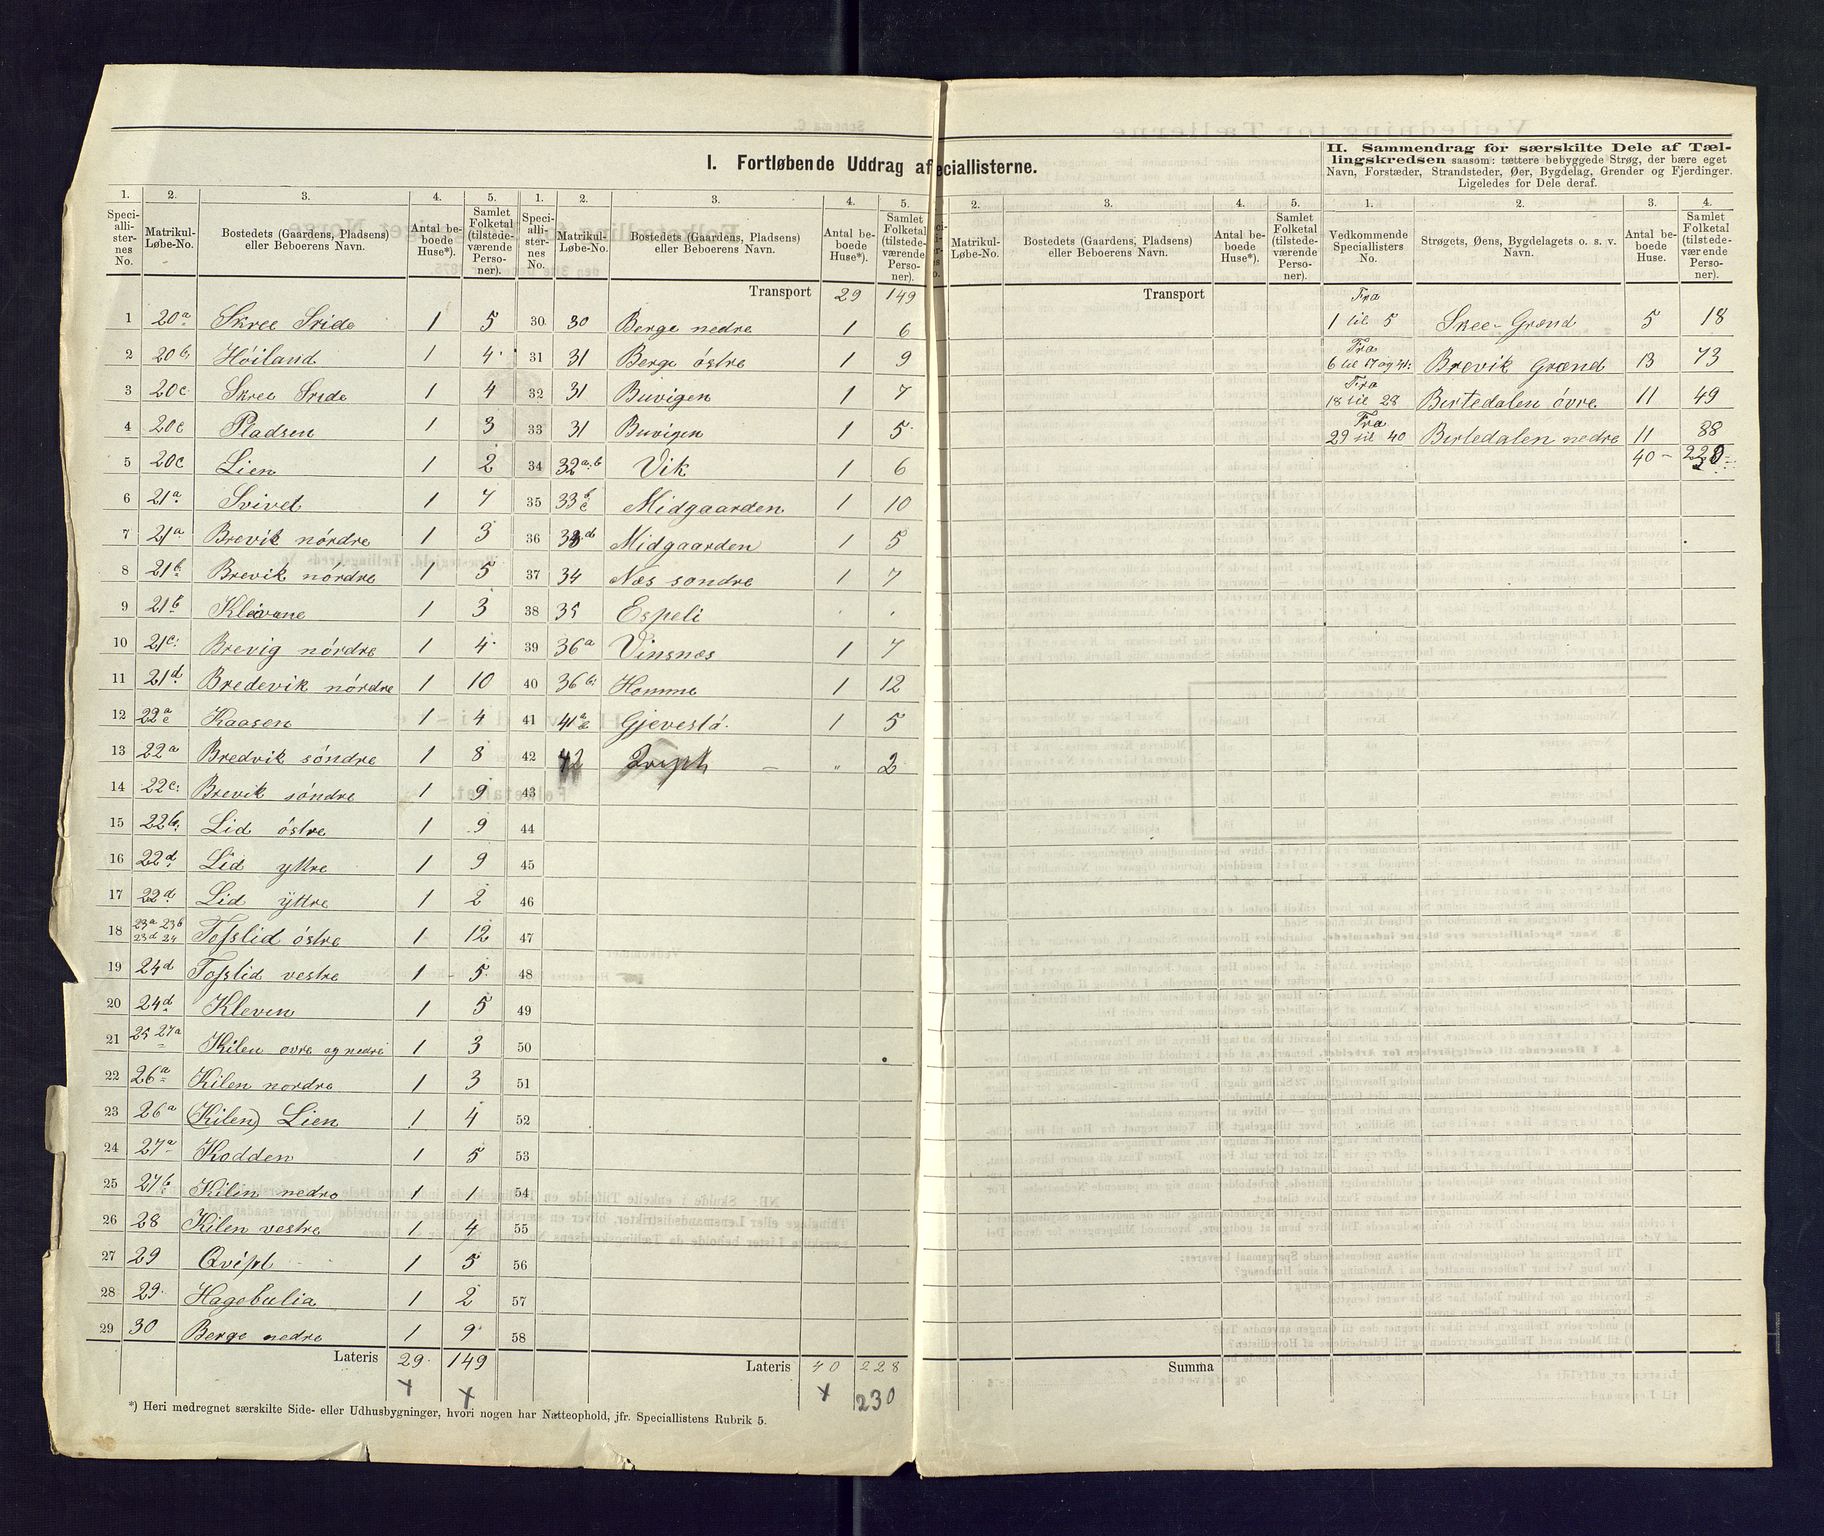 I. Fortløbende Uddrag af
eciallisterne.
II. Sammendrag for særskilte Dele af Tæl-
lingskredsen saasom: tættere bebyggede Strøg, der bære eget
Navn, Forstæder, Strandsteder, Øer, Bygdelag, Grender og Fjerdinger.
Ligeledes for Dele deraf.
1. 2. 3. 4. 5. 1. 2. 3. 4. 5. 2. 3. 4. 5. 1. 2. 3. 4.
Speciallisternes No. Matrikul-Løbe-No. Bostedets (Gaardens, Pladsens) eller Beboerens Navn. Antal beboede Huse*). Samlet Folketal (tilstedeværende Personer).
Speciallisternes No. Matrikul-Løbe-No. Bostedets (Gaardens, Pladsens) eller Beboerens Navn. Antal beboede Huse*). Samlet Folketal (tilstedeværende Personer).
Matrikul-Løbe-No. Bostedets (Gaardens, Pladsens) eller Beboerens Navn. Antal beboede Huse*). Samlet Folketal (tilstedeværende Personer).
Vedkommende Speciallisters No. Strøgets, Øens, Bygdelagets o. s. v. Navn. Antal beboede Huse. Samlet Folketal (tilstedeværende Personer).
1 20a Skree 1 5
2 20b Höiland 1 4
3 20c Skree 1 4
4 20c Pladsen 1 3
5 20c Lien 1 2
6 21a 1 7
7 21a Brevik nórdre 1 3
8 21b Brevik nórdre 1 5
9 21b Klevane 1 3
10 21c Brevig nórdre 1 4
11 21d Bredevik nórdre 1 10
12 22a c Kaasen 1 4
13 22a Bredvik sóndre 1 8
14 22c Brevik sóndre 1 9
15 22b Lid óstre 1 9
16 22d Lid yttre 1 9
17 22d Lid yttre 1 2
18 23a 23b 23d 24 Tofslid óstre 1 12
19 24d Tofslid vestre 1 5
20 24d Kleven 1 5
21 25 27a Kilen ovre og nedre 1 3
22 26a Kilen nordre 1 3
23 26a (Kilen) Lien 1 4
24 27a Kodden 1 5
25 27b Kilen nedre 1 1
26 28 Kilen vestre 1 4
27 29 Qvipt 1 5
28 29 Hagebulia 1 2
29 30 Berge nedre 1 9
Lateris 29 149
Transport 29 149
30 30 Berge nedre 1 6
31 31 Berge óstre 1 9
32 31 Buvigen 1 7
33 31 Buvigen 1 5
34 32a.b Vik 1 6
35 33b c Midgaarden 1 10
36 33d Midgaarden 1 5
37 34 Næs sondre 1 7
38 35 Espeli
39 36a Vinsnæs 1 7
40 36b Homme 1 12
41 41a Gjevestø 1 5
42 42 — " 2
43
44
45
46
47
48
49
50
51
52
53
54
55
56
57
58
Lateris 40 228
230
Transport
Summa
Fra
1 til 5 Skee-Grænd 5 18
Fra
6 til 17 og 41 Brevik Grænd 13 73
Fra
18 til 28 Bertedalen óvre 11 49
Fra
29 til 40 Bertedalen nedre 11 88
40
*) Heri medregnet særskilte Side- eller Udhusbygninger, hvori nogen har Natteophold, jfr. Speciallistens Rubrik 5.